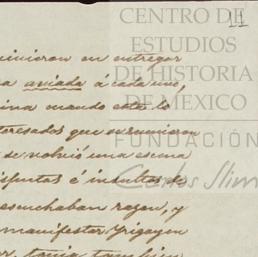 CENTRO DE
ESTUDIOS
DE HISTORIA
DE MEXICO
FUNDACIÓN
Carlos Slim
11
vinieron en entregar
a aviada á cada uno,
ina cuando este lo
teresados que se reunieron
se volvió una escena
isputas é insultos de
escuchaban razon, y
manifestar Yrigoyen
tenia tambien